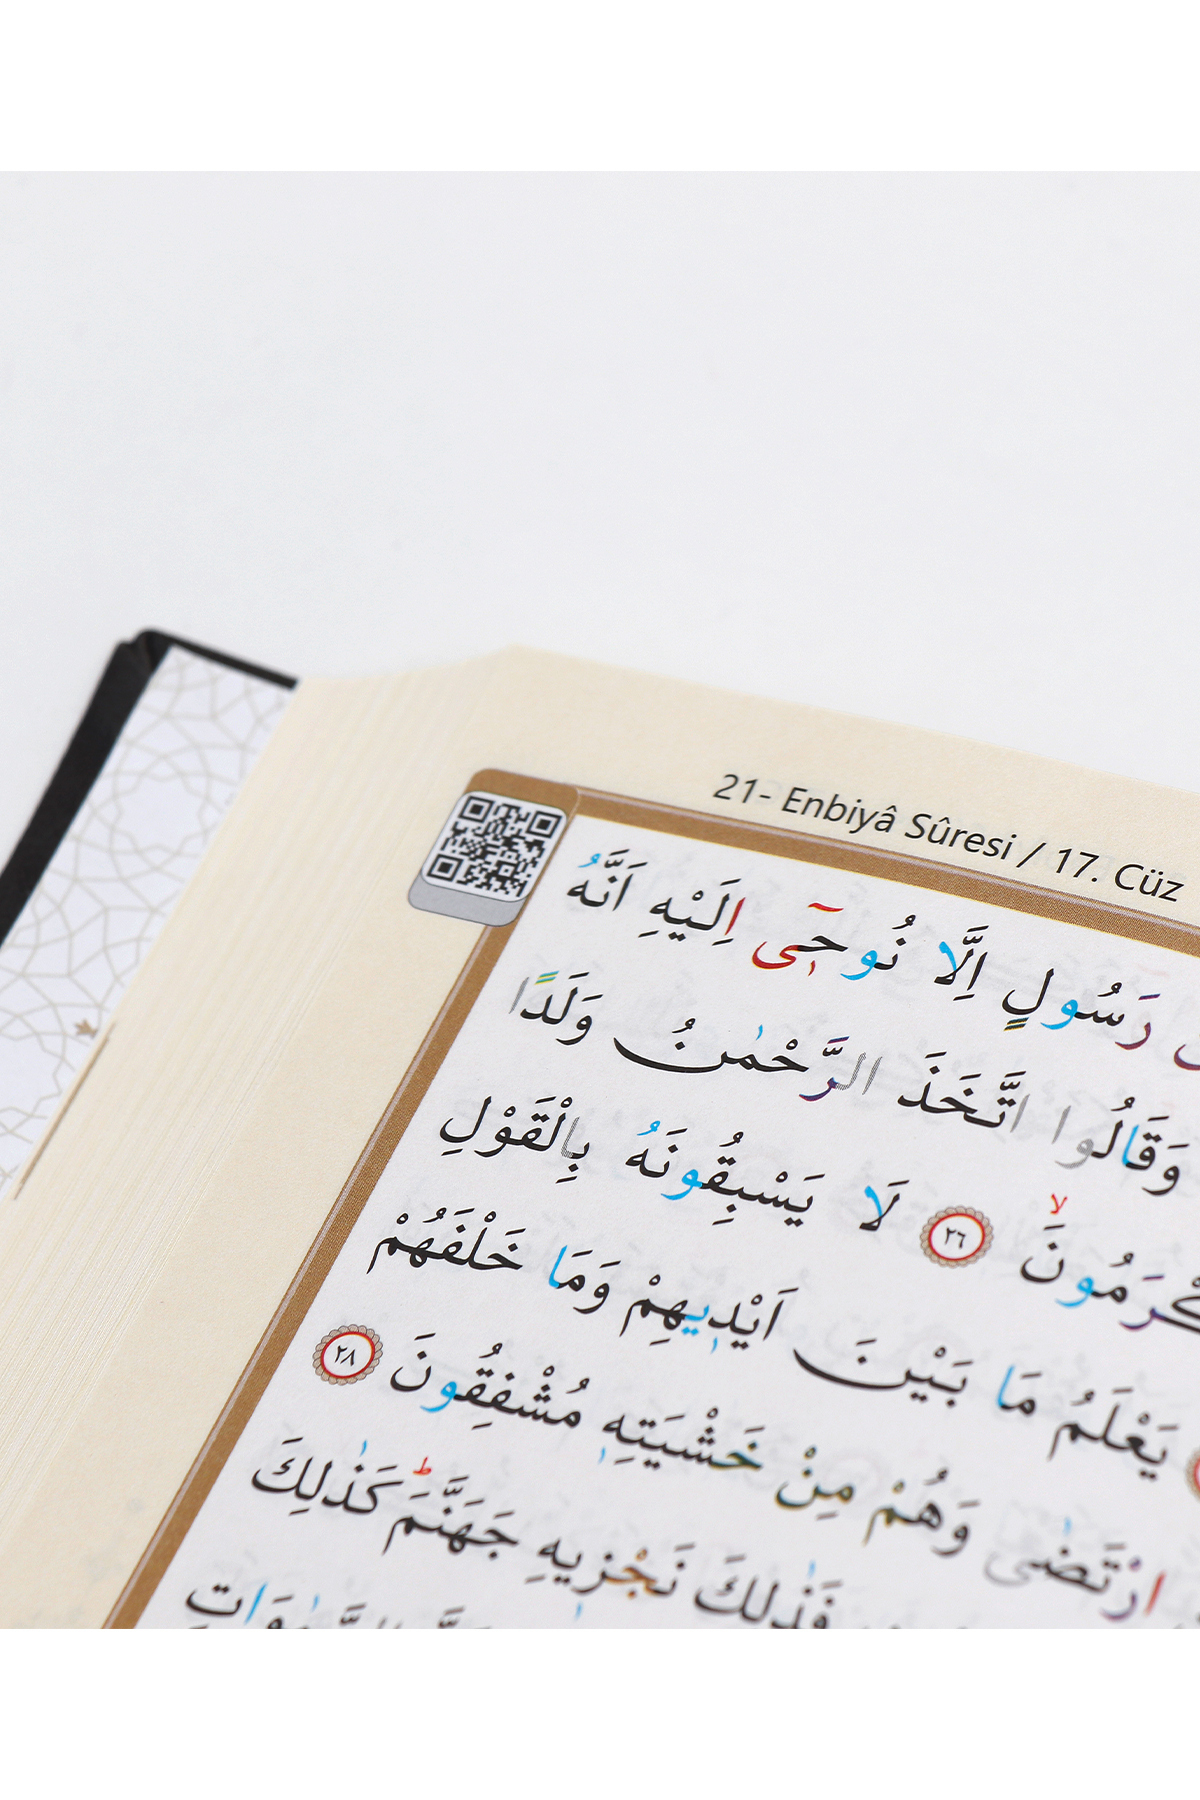 21- Enbiyâ Sûresi / 17. Cüz
رَسُولٍ اِلَّا نُوحٓى اِلَيْهِ اَنَّهُ
وَقَالُوا اتَّخَذَ الرَّحْمٰنُ وَلَدًا
لَا يَسْبِقُونَهُ بِالْقَوْلِ ﴿٢٦﴾
يَعْلَمُ مَا بَيْنَ اَيْدٖيهِمْ وَمَا خَلْفَهُمْ
ارْتَضٰى وَهُمْ مِنْ خَشْيَتِهٖ مُشْفِقُونَ ﴿٢٨﴾
فَذٰلِكَ نَجْزٖيهِ جَهَنَّمَۜ كَذٰلِكَ